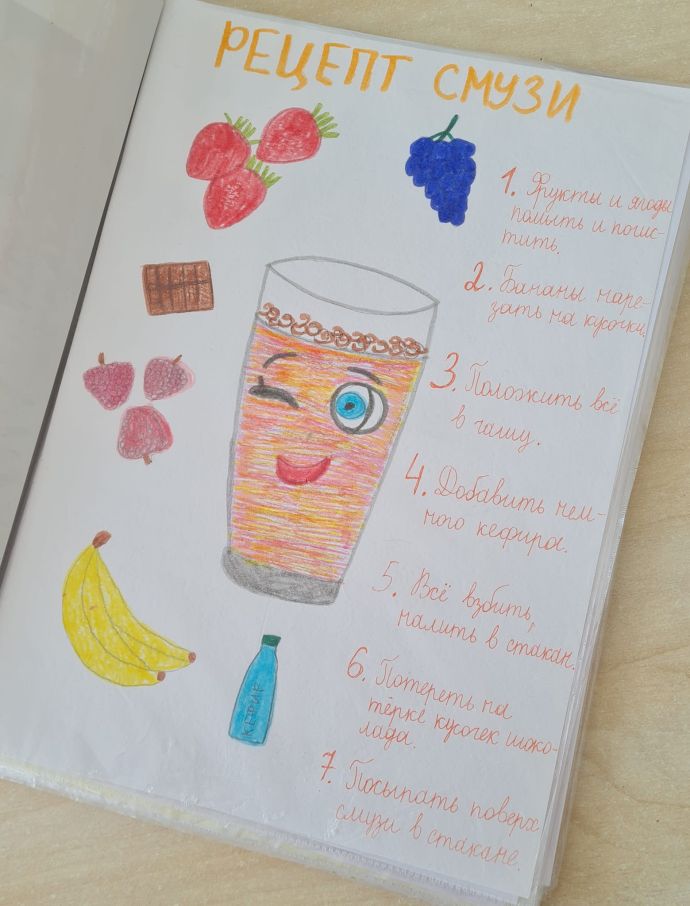 РЕЦЕПТ СМУЗИ
1. Фрукты и ягоды
помыть и почис-
тить.
2. Бананы наре-
зать на кусочки.
3. Положить всё
в чашу.
4. Добавить нем-
ного кефира.
5. Всё взбить,
налить в стакан.
6. Потереть на
тёрке кусочек шоко-
лада.
7. Посыпать поверх
смузи в стакане.
КЕФИР